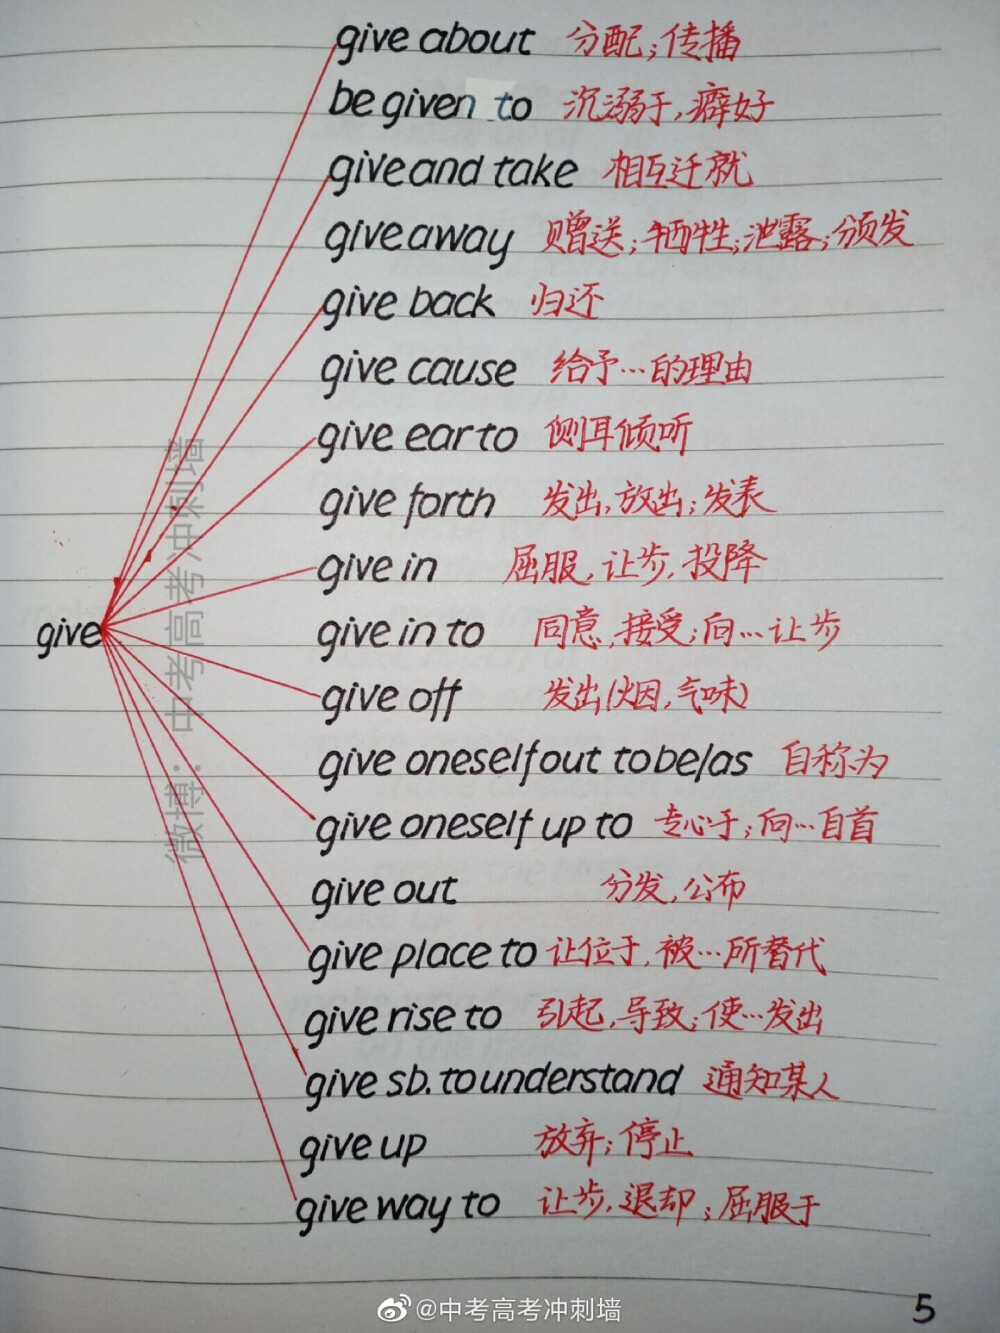 give about 分配；传播
be given to 沉溺于，癖好
give and take 相互迁就
give away 赠送；牺牲；泄露；颁发
give back 归还
give cause 给予…的理由
give ear to 侧耳倾听
give forth 发出，放出；发表
give in 屈服，让步，投降
give
give in to 同意，接受；向…让步
give off 发出(烟，气味)
give oneself out to be/as 自称为
give oneself up to 专心于；向…自首
give out 分发，公布
give place to 让位于，被…所替代
give rise to 引起，导致；使…发出
give sb. to understand 通知某人
give up 放弃；停止
give way to 让步，退却；屈服于
微博：中考高考冲刺墙
@中考高考冲刺墙
5